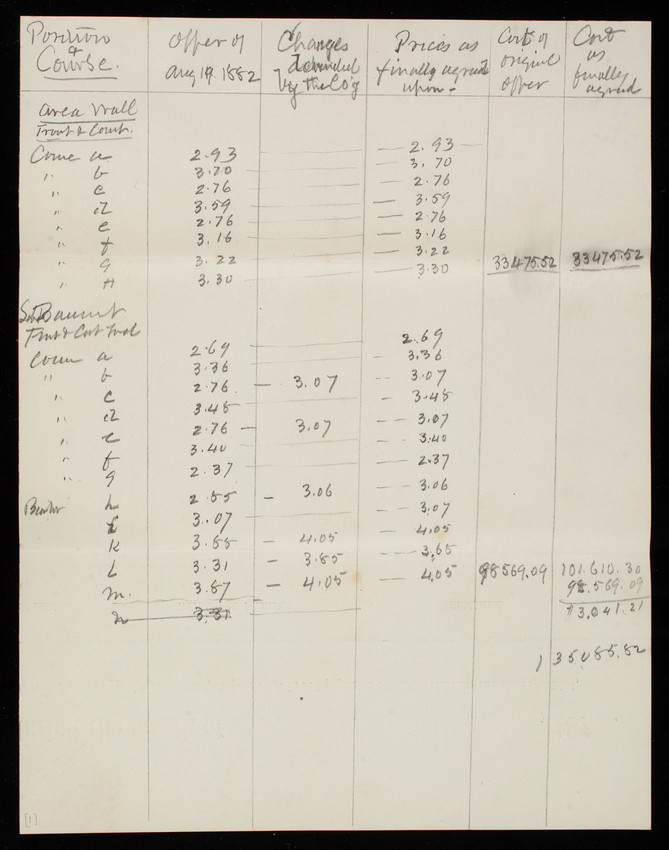 Position & Course. Offer of Aug 19. 1882 Changes demanded by the Co'y Prices as finally agreed upon - Cost of original offer Cost as finally agreed
Area Wall
Front & Court.
Course a 2.93 — 2.93 —
" b 3.70 — 3.70
" c 2.76 — 2.76
" d 3.59 — 3.59
" e 2.76 — 2.76
" f 3.16 — 3.16
" g 3.22 — 3.22 33475.52 33475.52
" H 3.30 — 3.30
Front & Court Wall
Course a 2.69 2.69
" b 3.36 — 3.36
" c 2.76 — 3.07 — 3.07
" d 3.48 — 3.48
" e 2.76 — 3.07 — 3.07
" f 3.40 — 3.40
" g 2.37 — 2.37
h 2.85 — 3.06 — 3.06
3.07 — 3.07
K 3.88 — 4.05 — 4.05
L 3.31 — 3.85 — 3.85 98569.09 101.610.30
m. 3.87 — 4.05 — 4.05 98.569.09
n 3.31 3,041.21
135.085.82
[1]